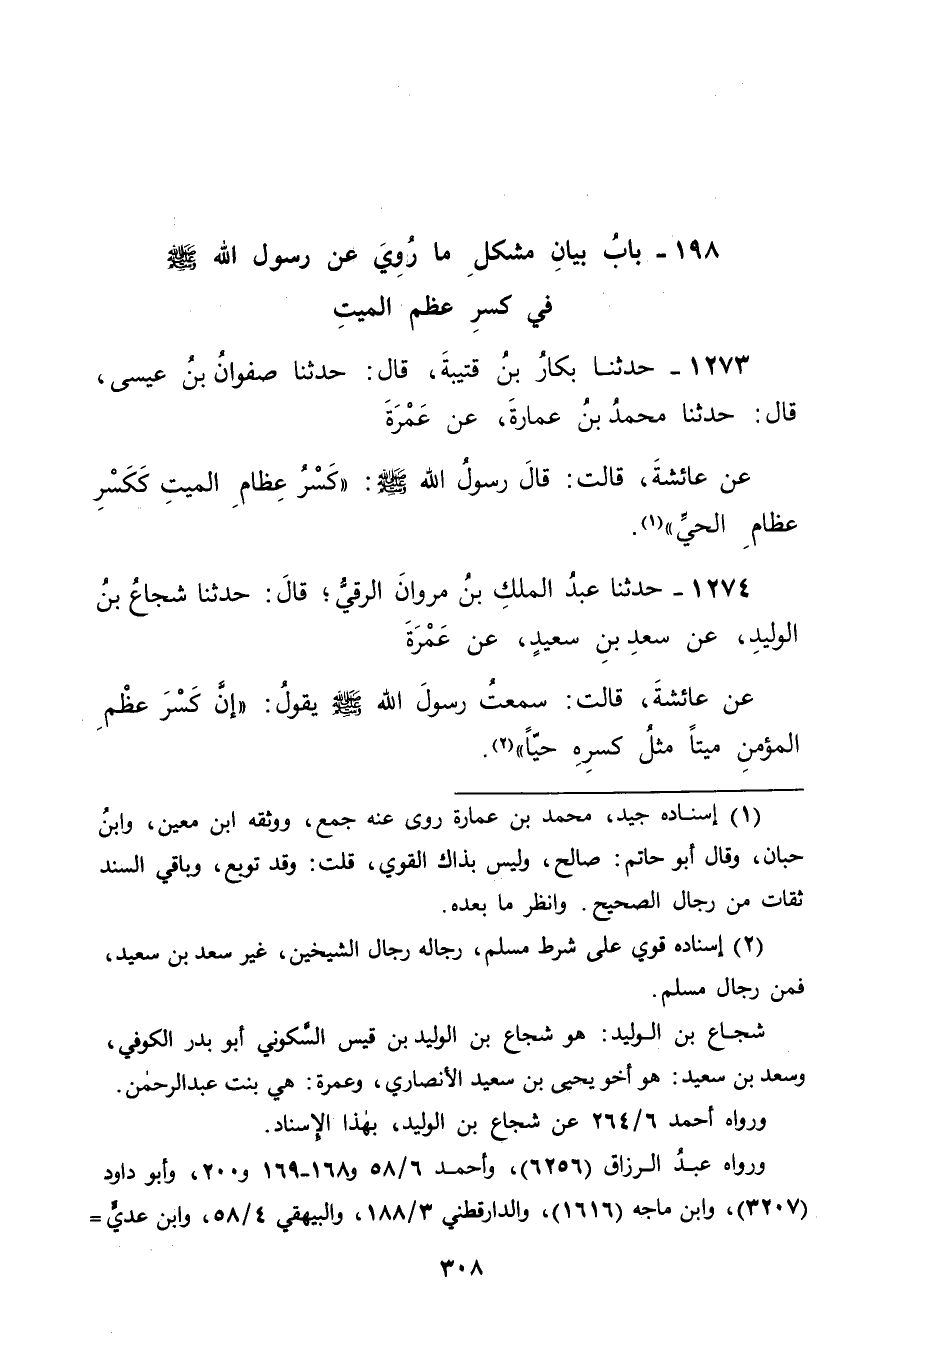 ١٩٨ ـ بابُ بيانِ مشكلِ ما رُوِيَ عن رسول الله ﷺ
في كسرِ عظم الميتِ
١٢٧٣ ـ حدثنا بكارُ بنُ قتيبةَ، قال: حدثنا صفوانُ بنُ عيسى،
قال: حدثنا محمدُ بنُ عمارةَ، عن عَمْرَةَ
عن عائشةَ، قالت: قالَ رسولُ الله ﷺ: «كَسْرُ عِظامِ الميتِ كَكَسْرِ
عظامِ الحيِّ»(١).
١٢٧٤ ـ حدثنا عبدُ الملكِ بنُ مروانَ الرقيُّ؛ قالَ: حدثنا شجاعُ بنُ
الوليدِ، عن سعدِ بنِ سعيدٍ، عن عَمْرَةَ
عن عائشةَ، قالت: سمعتُ رسولَ الله ﷺ يقولُ: «إنَّ كَسْرَ عظْمِ
المؤمنِ ميتاً مثلُ كسرِهِ حيّاً»(٢).
(١) إسناده جيد، محمد بن عمارة روى عنه جمع، ووثقه ابن معين، وابنُ
حبان، وقال أبو حاتم: صالح، وليس بذاك القوي، قلت: وقد توبع، وباقي السند
ثقات من رجال الصحيح. وانظر ما بعده.
(٢) إسناده قوي على شرط مسلم، رجاله رجال الشيخين، غير سعد بن سعيد،
فمن رجال مسلم.
شجاع بن الوليد: هو شجاع بن الوليد بن قيس السَّكوني أبو بدر الكوفي،
وسعد بن سعيد: هو أخو يحيى بن سعيد الأنصاري، وعمرة: هي بنت عبدالرحمٰن.
ورواه أحمد ٢٦٤/٦ عن شجاع بن الوليد، بهٰذا الإِسناد.
ورواه عبدُ الرزاق (٦٢٥٦)، وأحمد ٥٨/٦ و١٦٨ـ١٦٩ و٢٠٠، وأبو داود
(٣٢٠٧)، وابن ماجه (١٦١٦)، والدارقطني ١٨٨/٣، والبيهقي ٥٨/٤، وابن عديٍّ =
٣٠٨